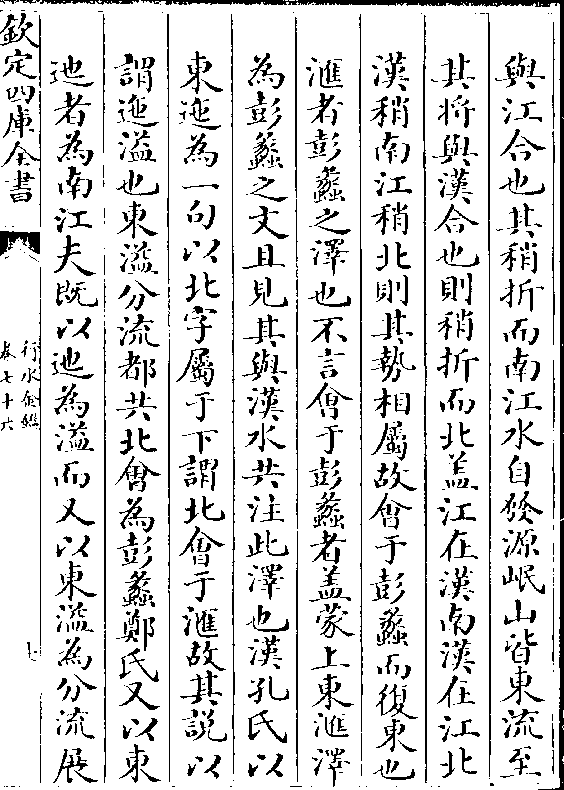 與江合也其稍折而南江水自發源岷山皆東流至
其將與漢合也則稍折而北盖江在漢南漢在江北
漢稍南江稍北則其勢相屬故會于彭蠡而復東也
滙者彭蠡之澤也不言會于彭蠡者盖蒙上東滙澤
為彭蠡之文且見其與漢水共注此澤也漢孔氏以
東迤為一句以北字屬于下謂北會于滙故其説以
謂迤溢也東溢分流都共北會為彭蠡鄭氏又以東
迆者為南江夫既以迆為溢而又以東溢為分流展
欽定四庫全書
行水金鑑
卷七十六
七